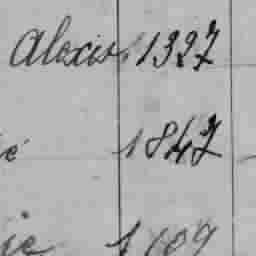 Alexis 1327
é 1847
ie 1109